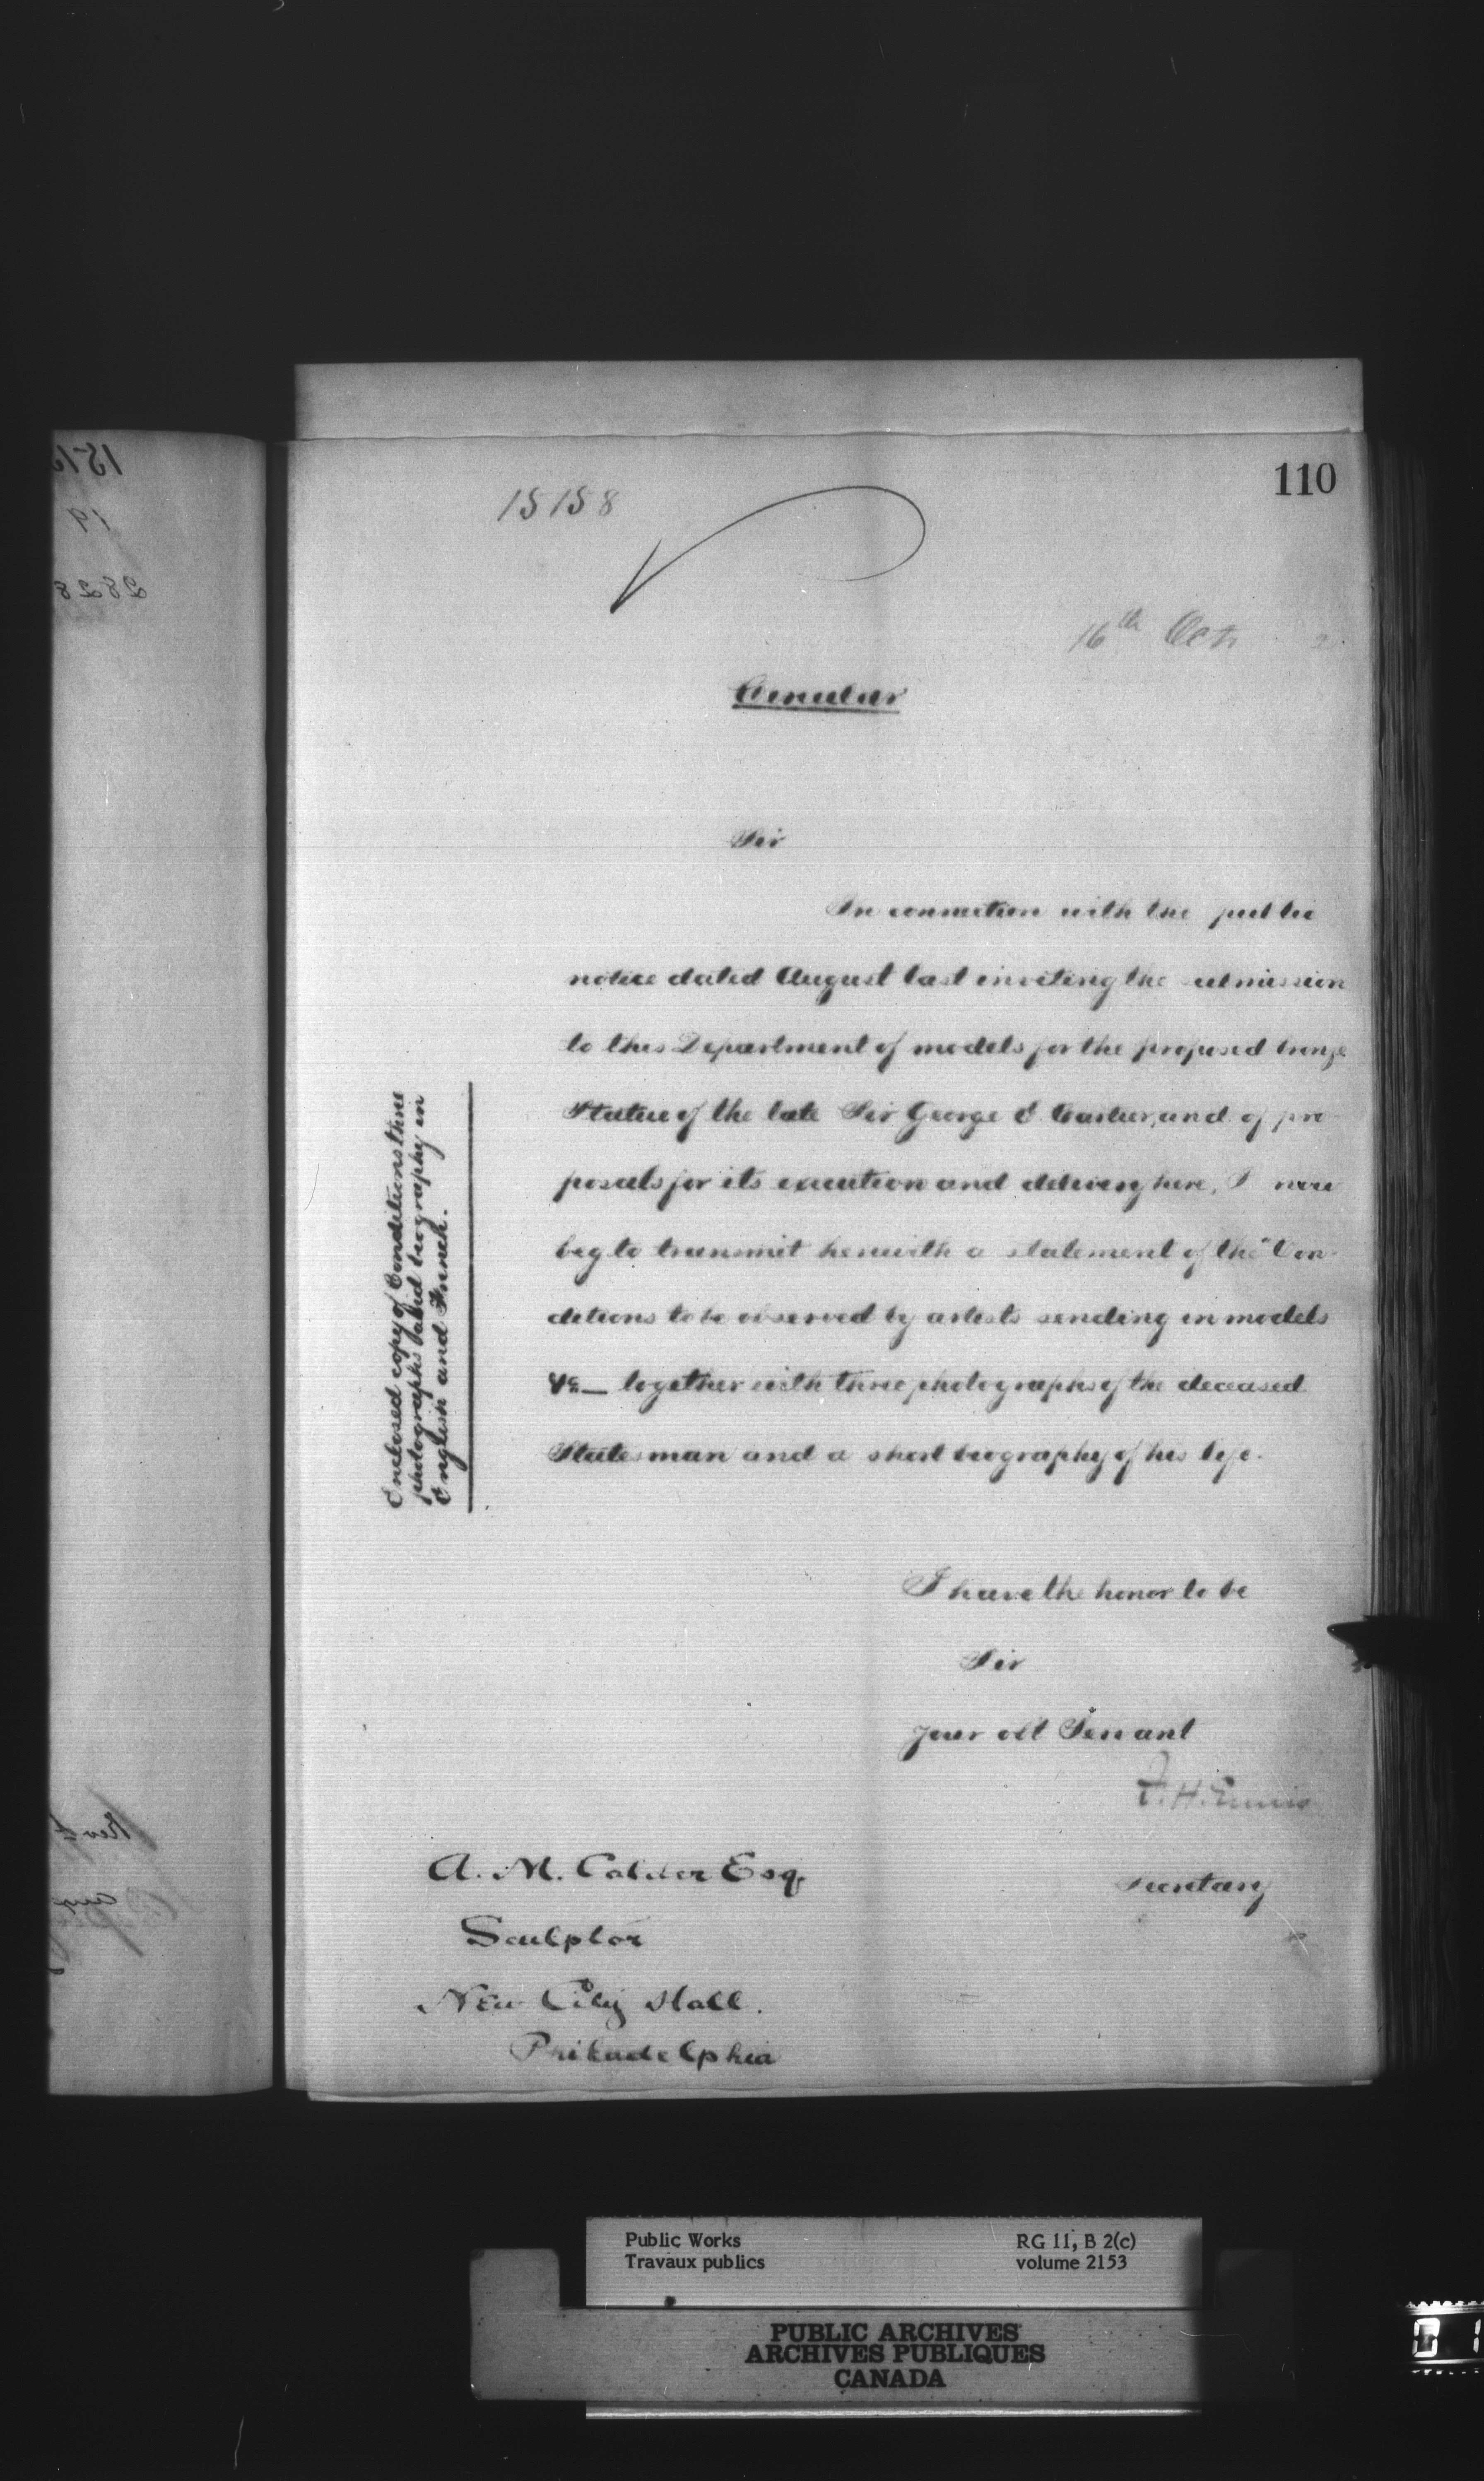 110
15158
16th Oct 2
Circular
Sir
In connection with the public
notice dated August last inviting the submission
to this Department of models for the proposed bronze
Statue of the late Sir George E. Cartier, and of pro-
posals for its execution and delivery here, I now
beg to transmit herewith a statement of the "Con-
ditions to be observed by artists sending in models
&c— together with three photographs of the deceased
Statesman and a short biography of his life.
Enclosed copy of Conditions three
photographs and biography in
English and French.
I have the honor to be
Sir
Your obt Servant
F. H. Ennis
Secretary
A. M. Calder Esq.
Sculptor
New City Hall.
Philadelphia
2828
19
Public Works
Travaux publics
RG 11, B 2(c)
volume 2153
PUBLIC ARCHIVES
ARCHIVES PUBLIQUES
CANADA